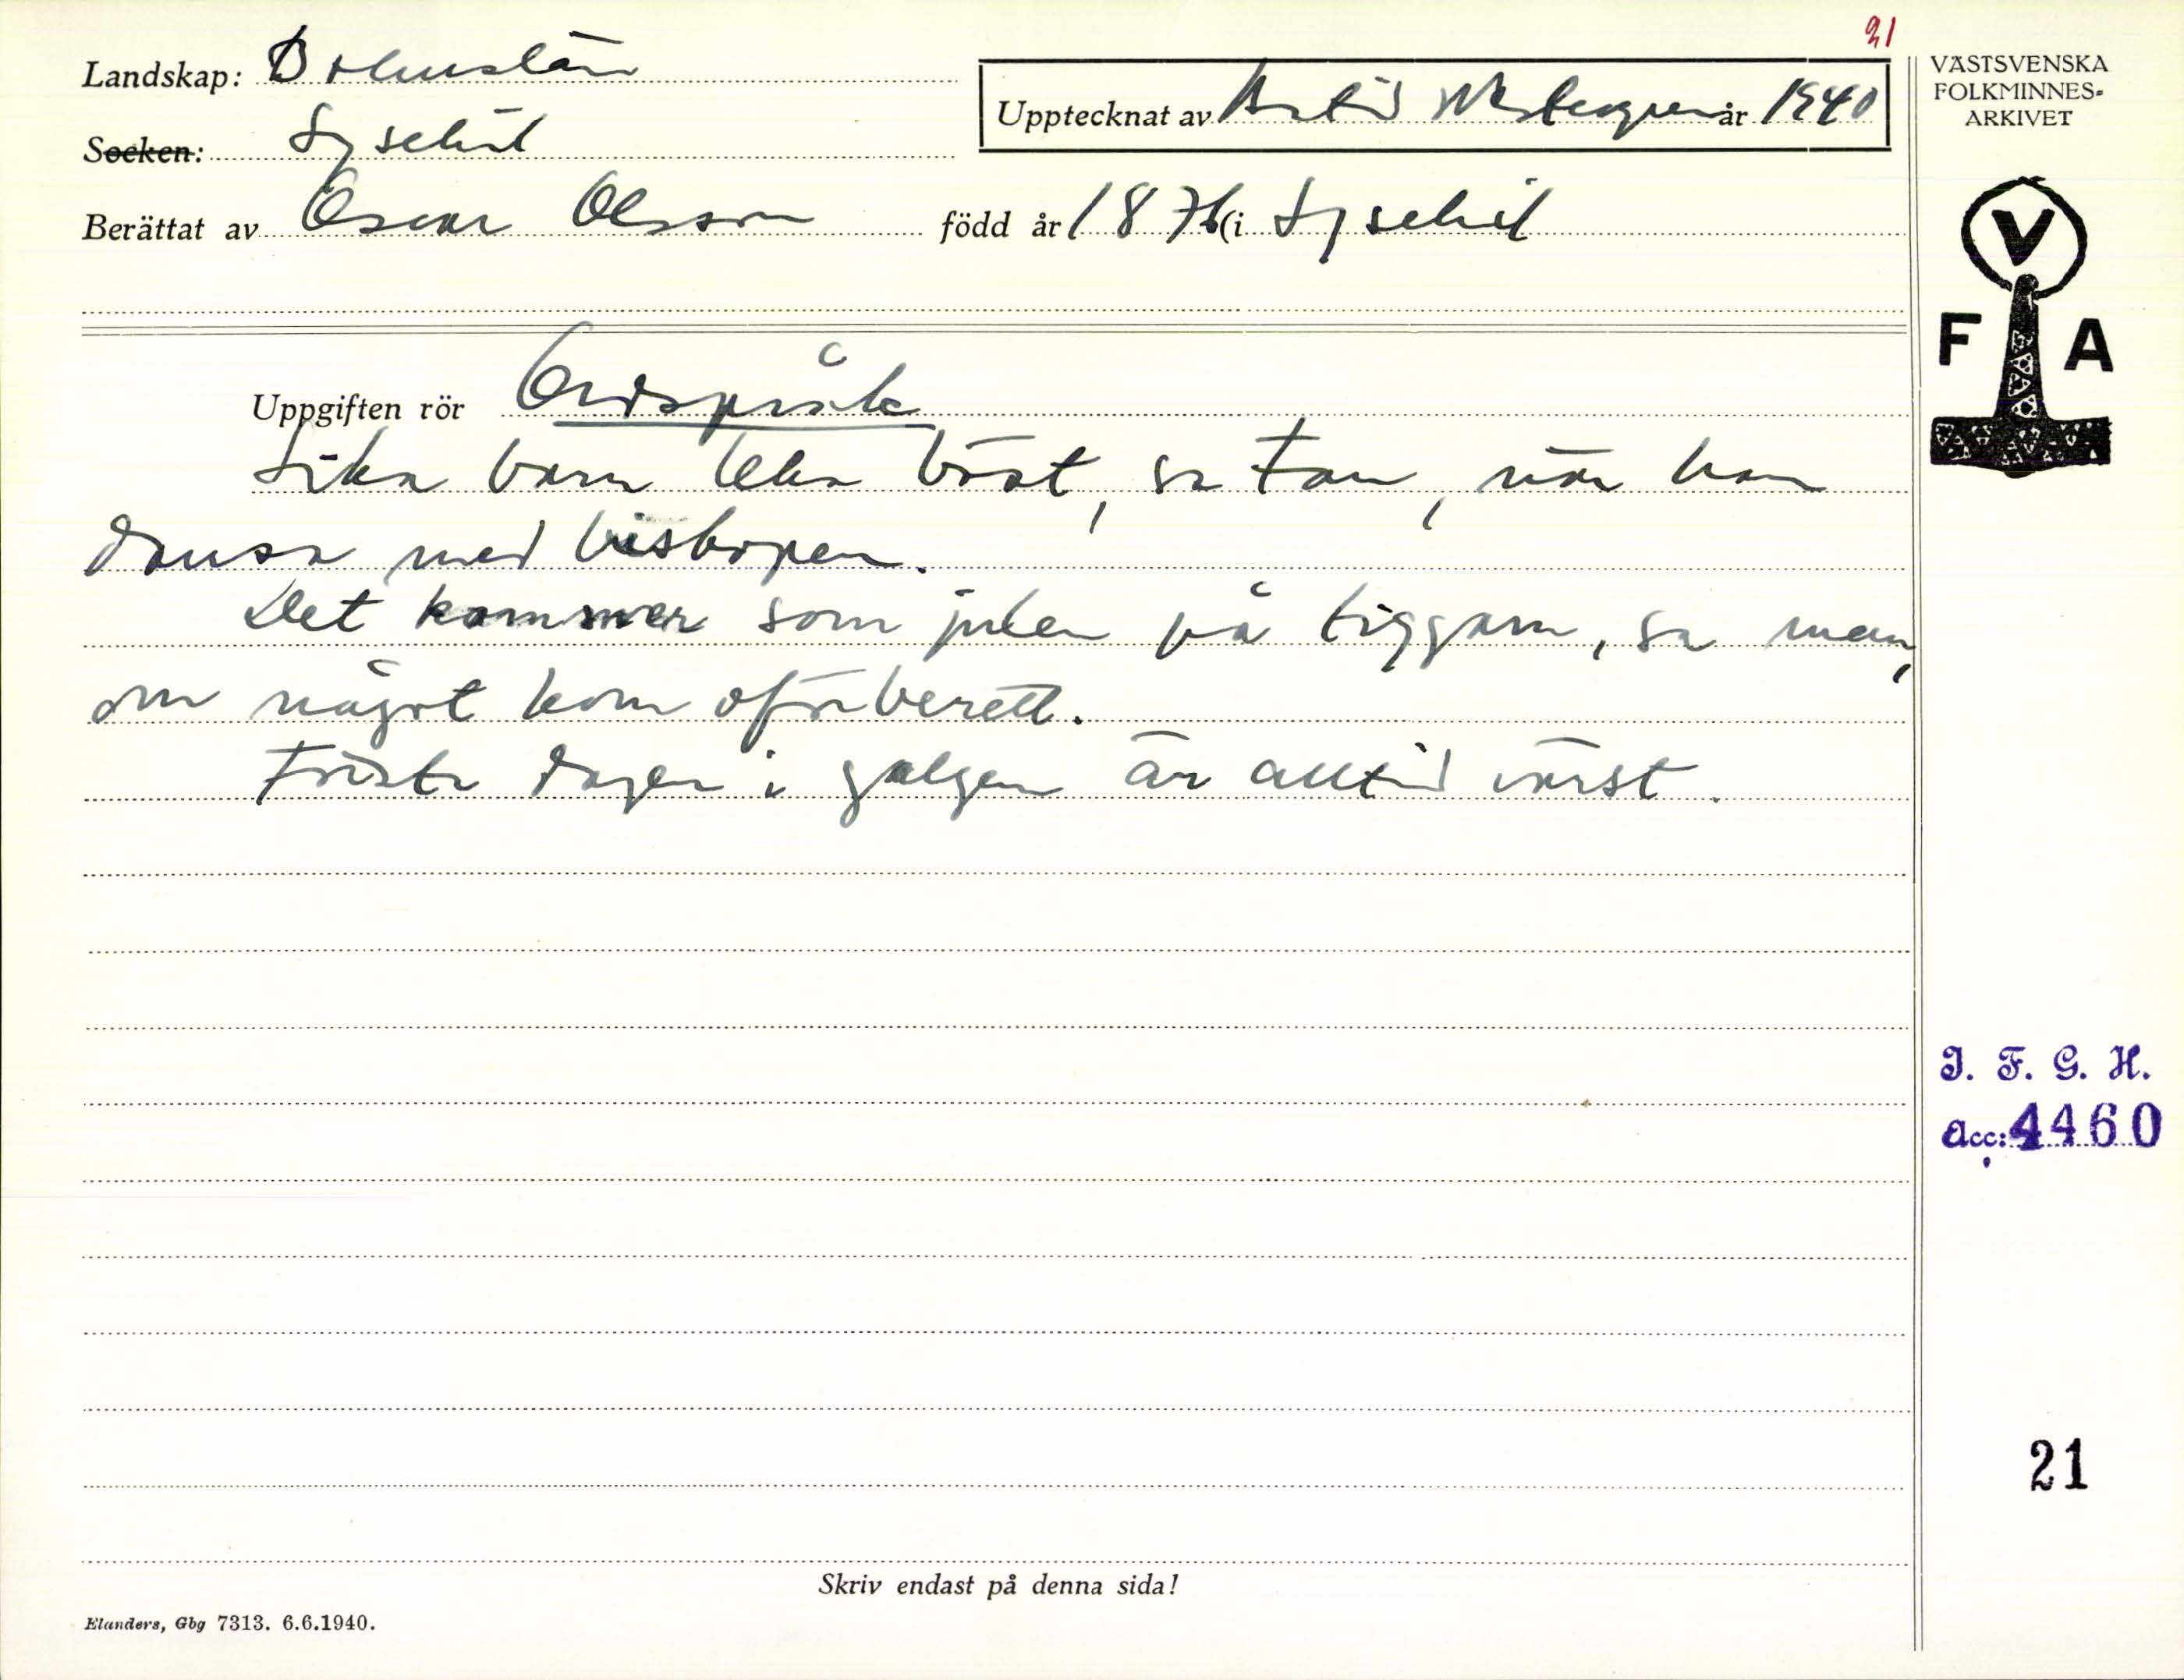 21
Landskap: Bohuslän
Upptecknat av Astrid Westergren år 1940
Socken: Lysekil
Berättat av Oscar Olsson född år 1876 i Lysekil
Uppgiften rör Ordspråk
Lika barn leka bäst, sa Fan, när han
dansa med biskopen.
Det kommer som julen på tiggarn, sa man,
om något kom oförberett.
Första dagen i galgen är alltid värst.
Skriv endast på denna sida!
Elanders, Gbg 7313. 6.6.1940.
VÄSTSVENSKA
FOLKMINNES-
ARKIVET
V
F A
I. F. G. H.
Acc: 4460
21